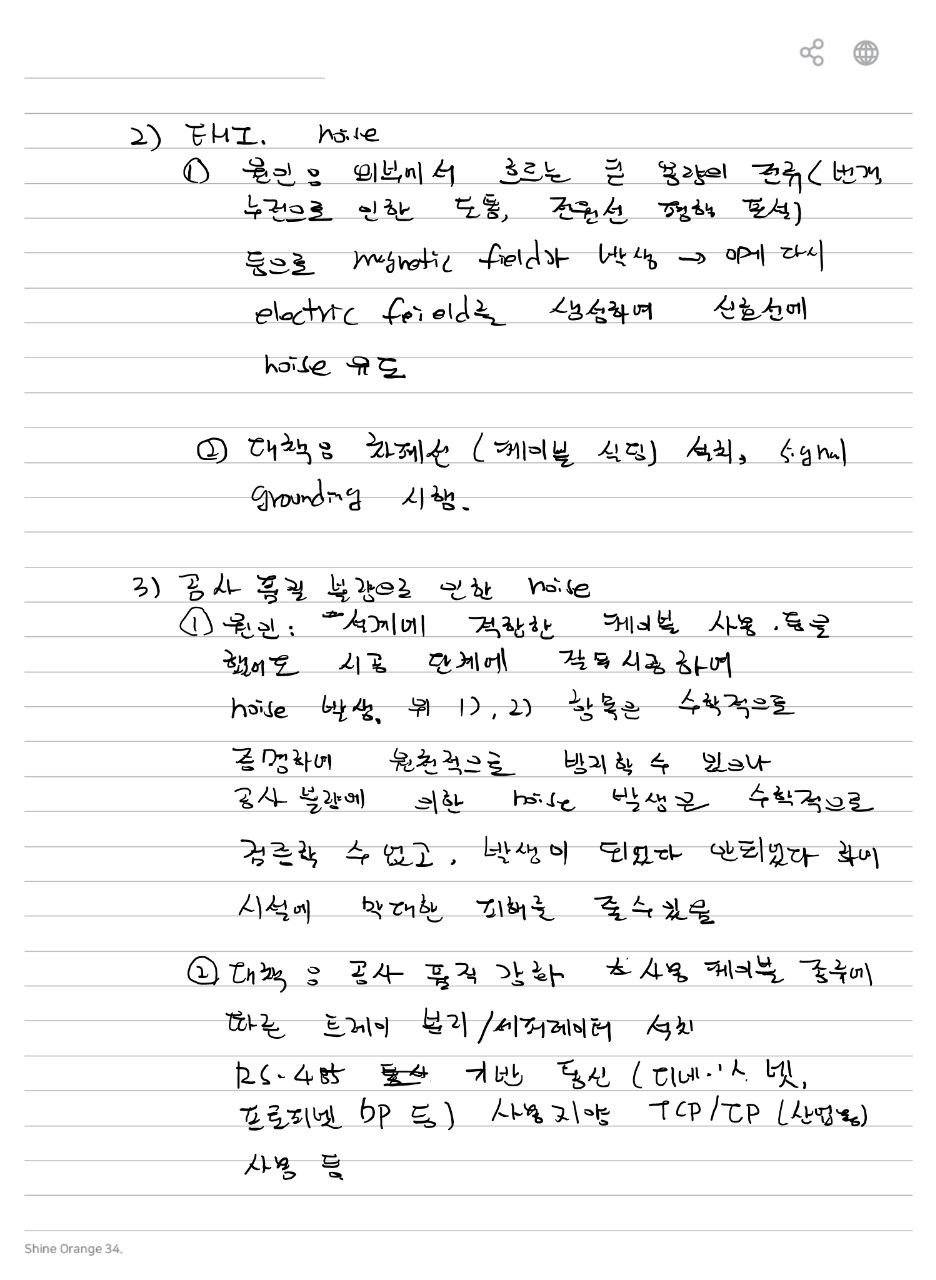 2) EMI. noise
① 원인 : 외부에서 흐르는 큰 용량의 전류 (번개,
누전으로 인한 도통, 전원선 평행 포설)
등으로 magnetic field가 발생 → 이게 다시
electric feield를 생성하여 신호선에
noise 유도
② 대책 : 차폐선 (케이블 쉴딩) 설치, signal
grounding 시행.
3) 공사 품질 불량으로 인한 noise
① 원인 : 설계에 적합한 케이블 사용 등을
했어도 시공 단계에 잘못 시공하여
noise 발생. 위 1), 2) 항목은 수학적으로
증명하여 원천적으로 방지할 수 있으나
공사 불량에 의한 noise 발생은 수학적으로
검증할 수 없고, 발생이 되었다 안되었다 하여
시설에 막대한 피해를 줄 수 있음
② 대책 : 공사 품질 강화 사용 케이블 종류에
따른 트레이 분리/세퍼레이터 설치
RS-485 기반 통신 (디바이스 넷,
프로피넷 DP 등) 사용지양 TCP/IP (산업용)
사용 등
Shine Orange 34.